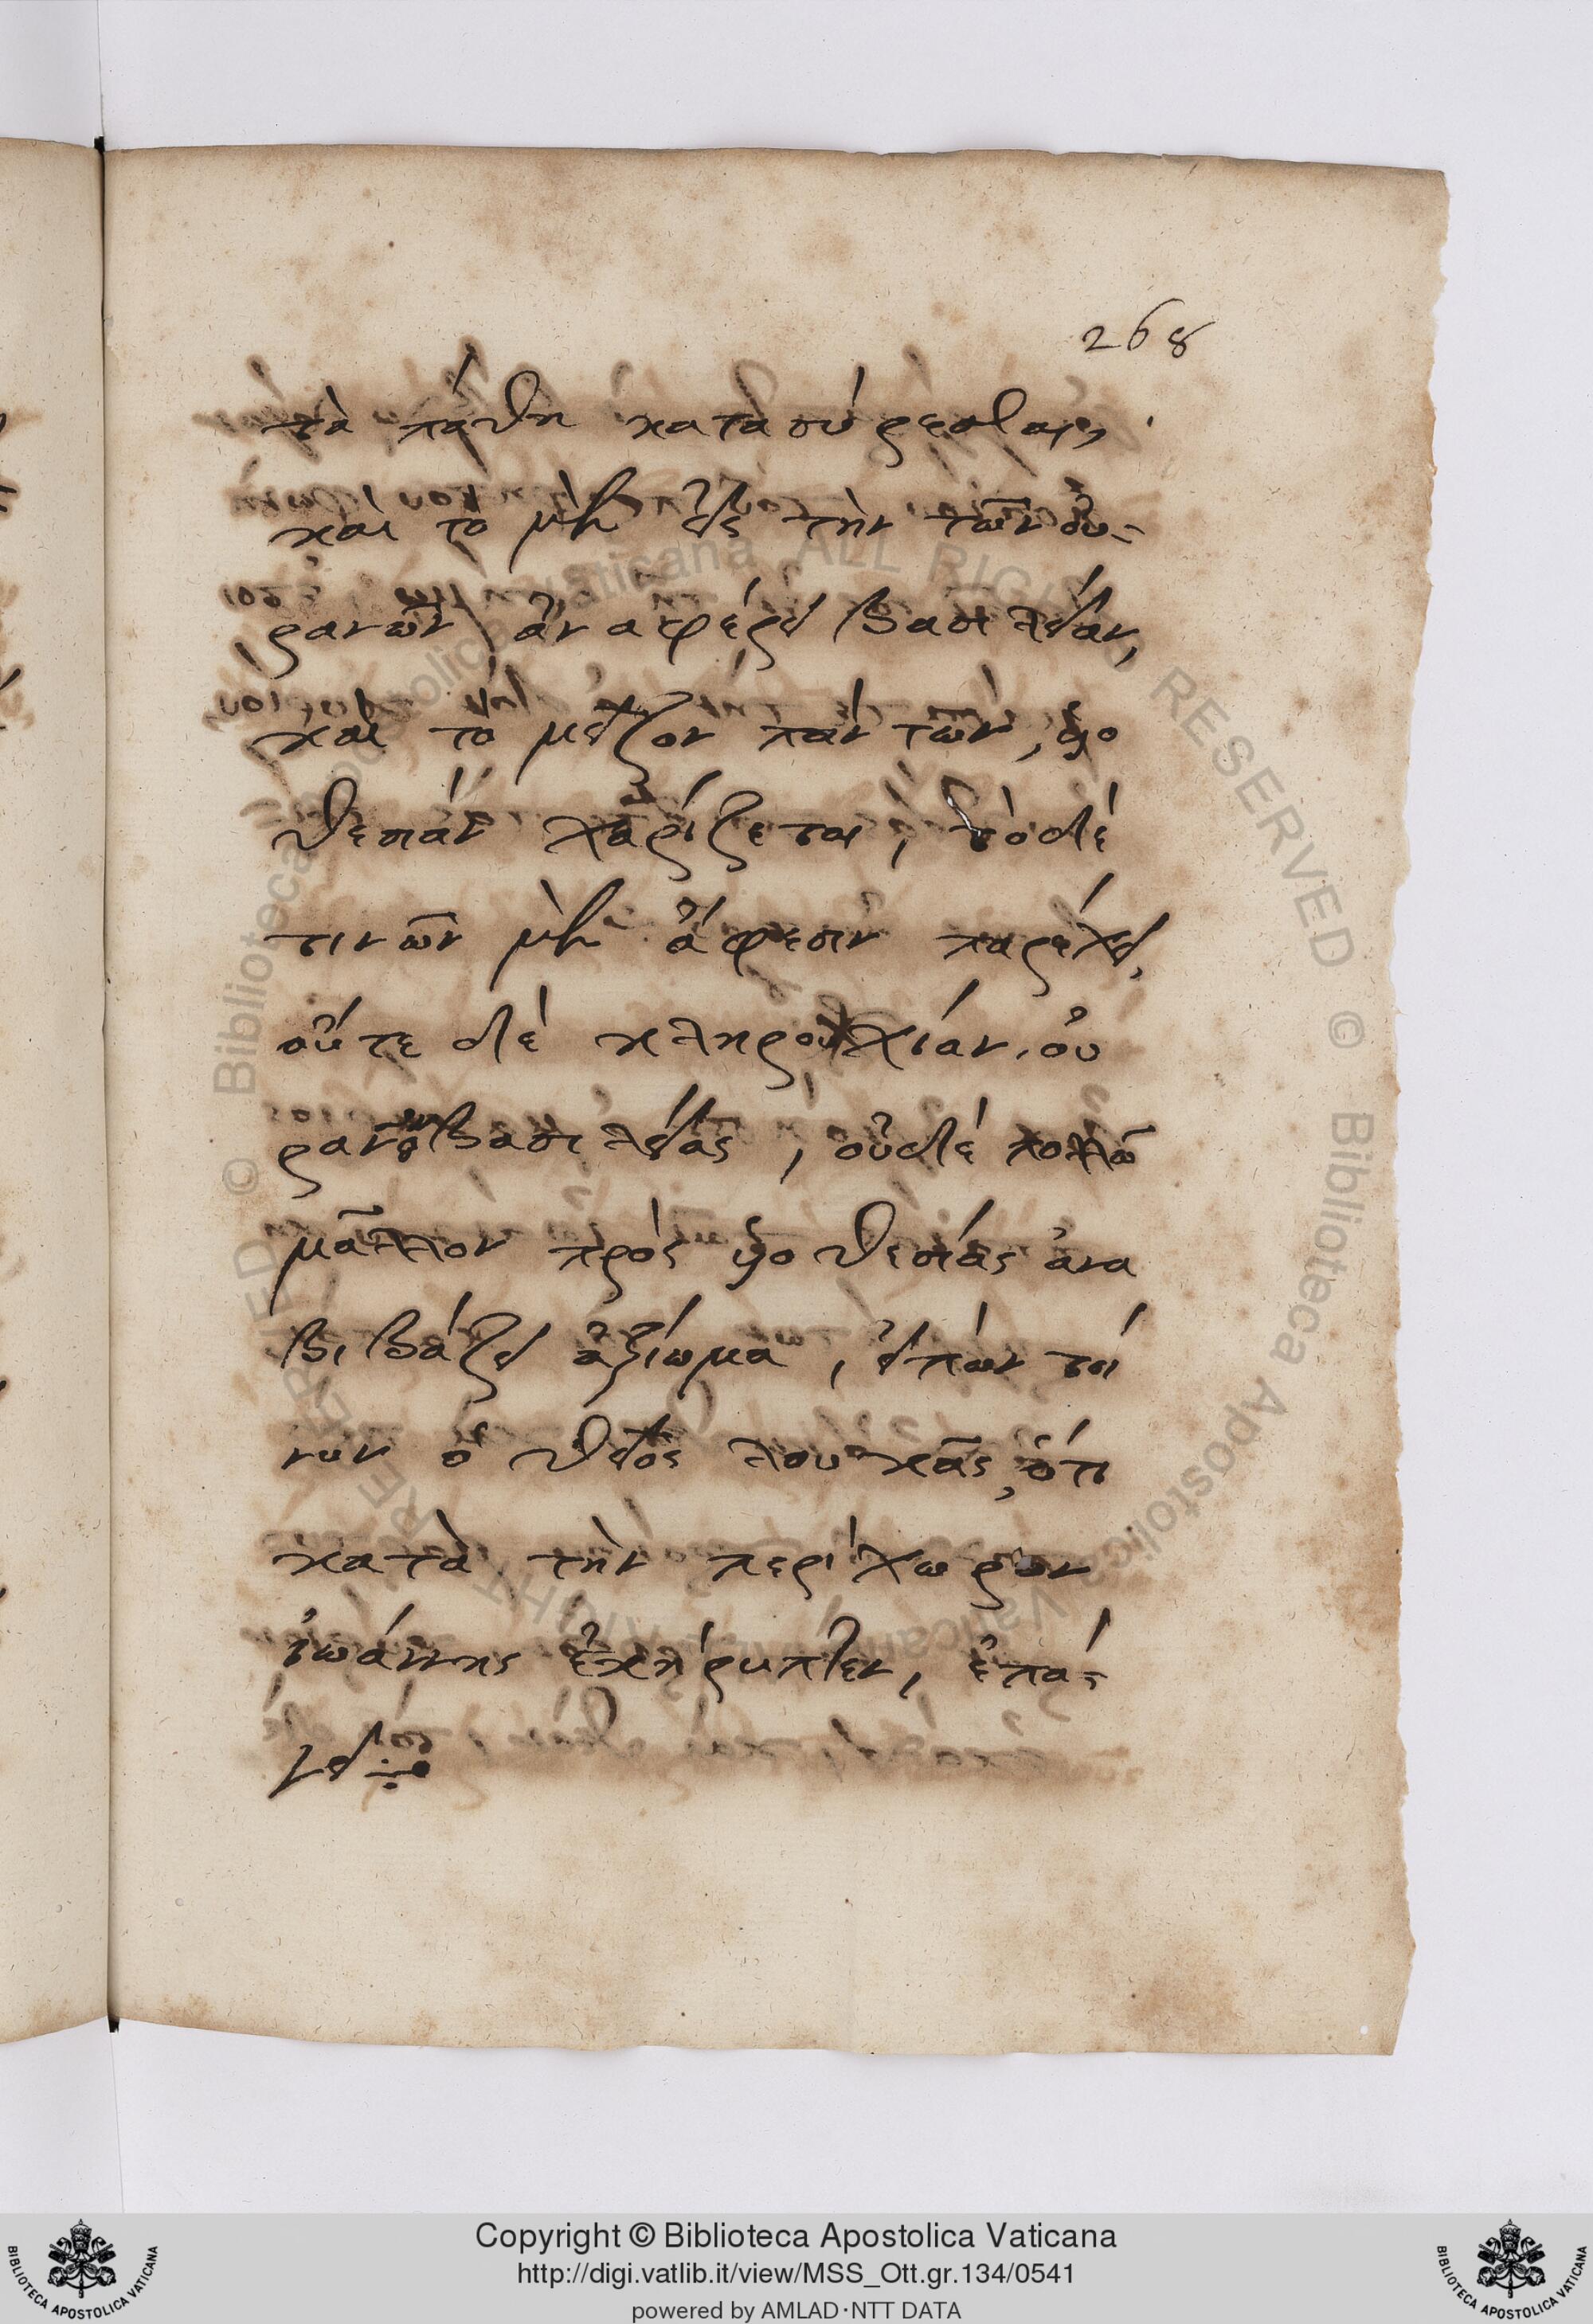 268
τὰ πάθη κατασύρεσθαι,
καὶ τὸ μὴ εἰς τὴν τῶν οὐ-
ρανῶν ἀναφέρει βασιλείαν,
καὶ τὸ μεῖζον πάντων, υἱο
θεσίαν χαρίζεται, τὸ δὲ
τινῶν μὴ ἄφεσιν παρέχει,
οὔτε δὲ κληρουχίαν οὐ
ρανῶν βασιλείας, οὐδὲ πολλῶ
μᾶλλον πρὸς υἱοθεσίας ἀνα
βιβάζει ἀξίωμα, εἰπὼν τοί
νυν ὁ θεῖος λουκᾶς, ὅτι
κατὰ τὴν περίχωρον
ἰωάννης ἐκήρυττεν, ἐπά-
γει
© Biblioteca Apostolica Vaticana ALL RIGHTS RESERVED © Biblioteca Apostolica Vaticana ALL RIGHTS RESERVED
Copyright © Biblioteca Apostolica Vaticana
http://digi.vatlib.it/view/MSS_Ott.gr.134/0541
powered by AMLAD·NTT DATA
BIBLIOTECA APOSTOLICA VATICANA
BIBLIOTECA APOSTOLICA VATICANA